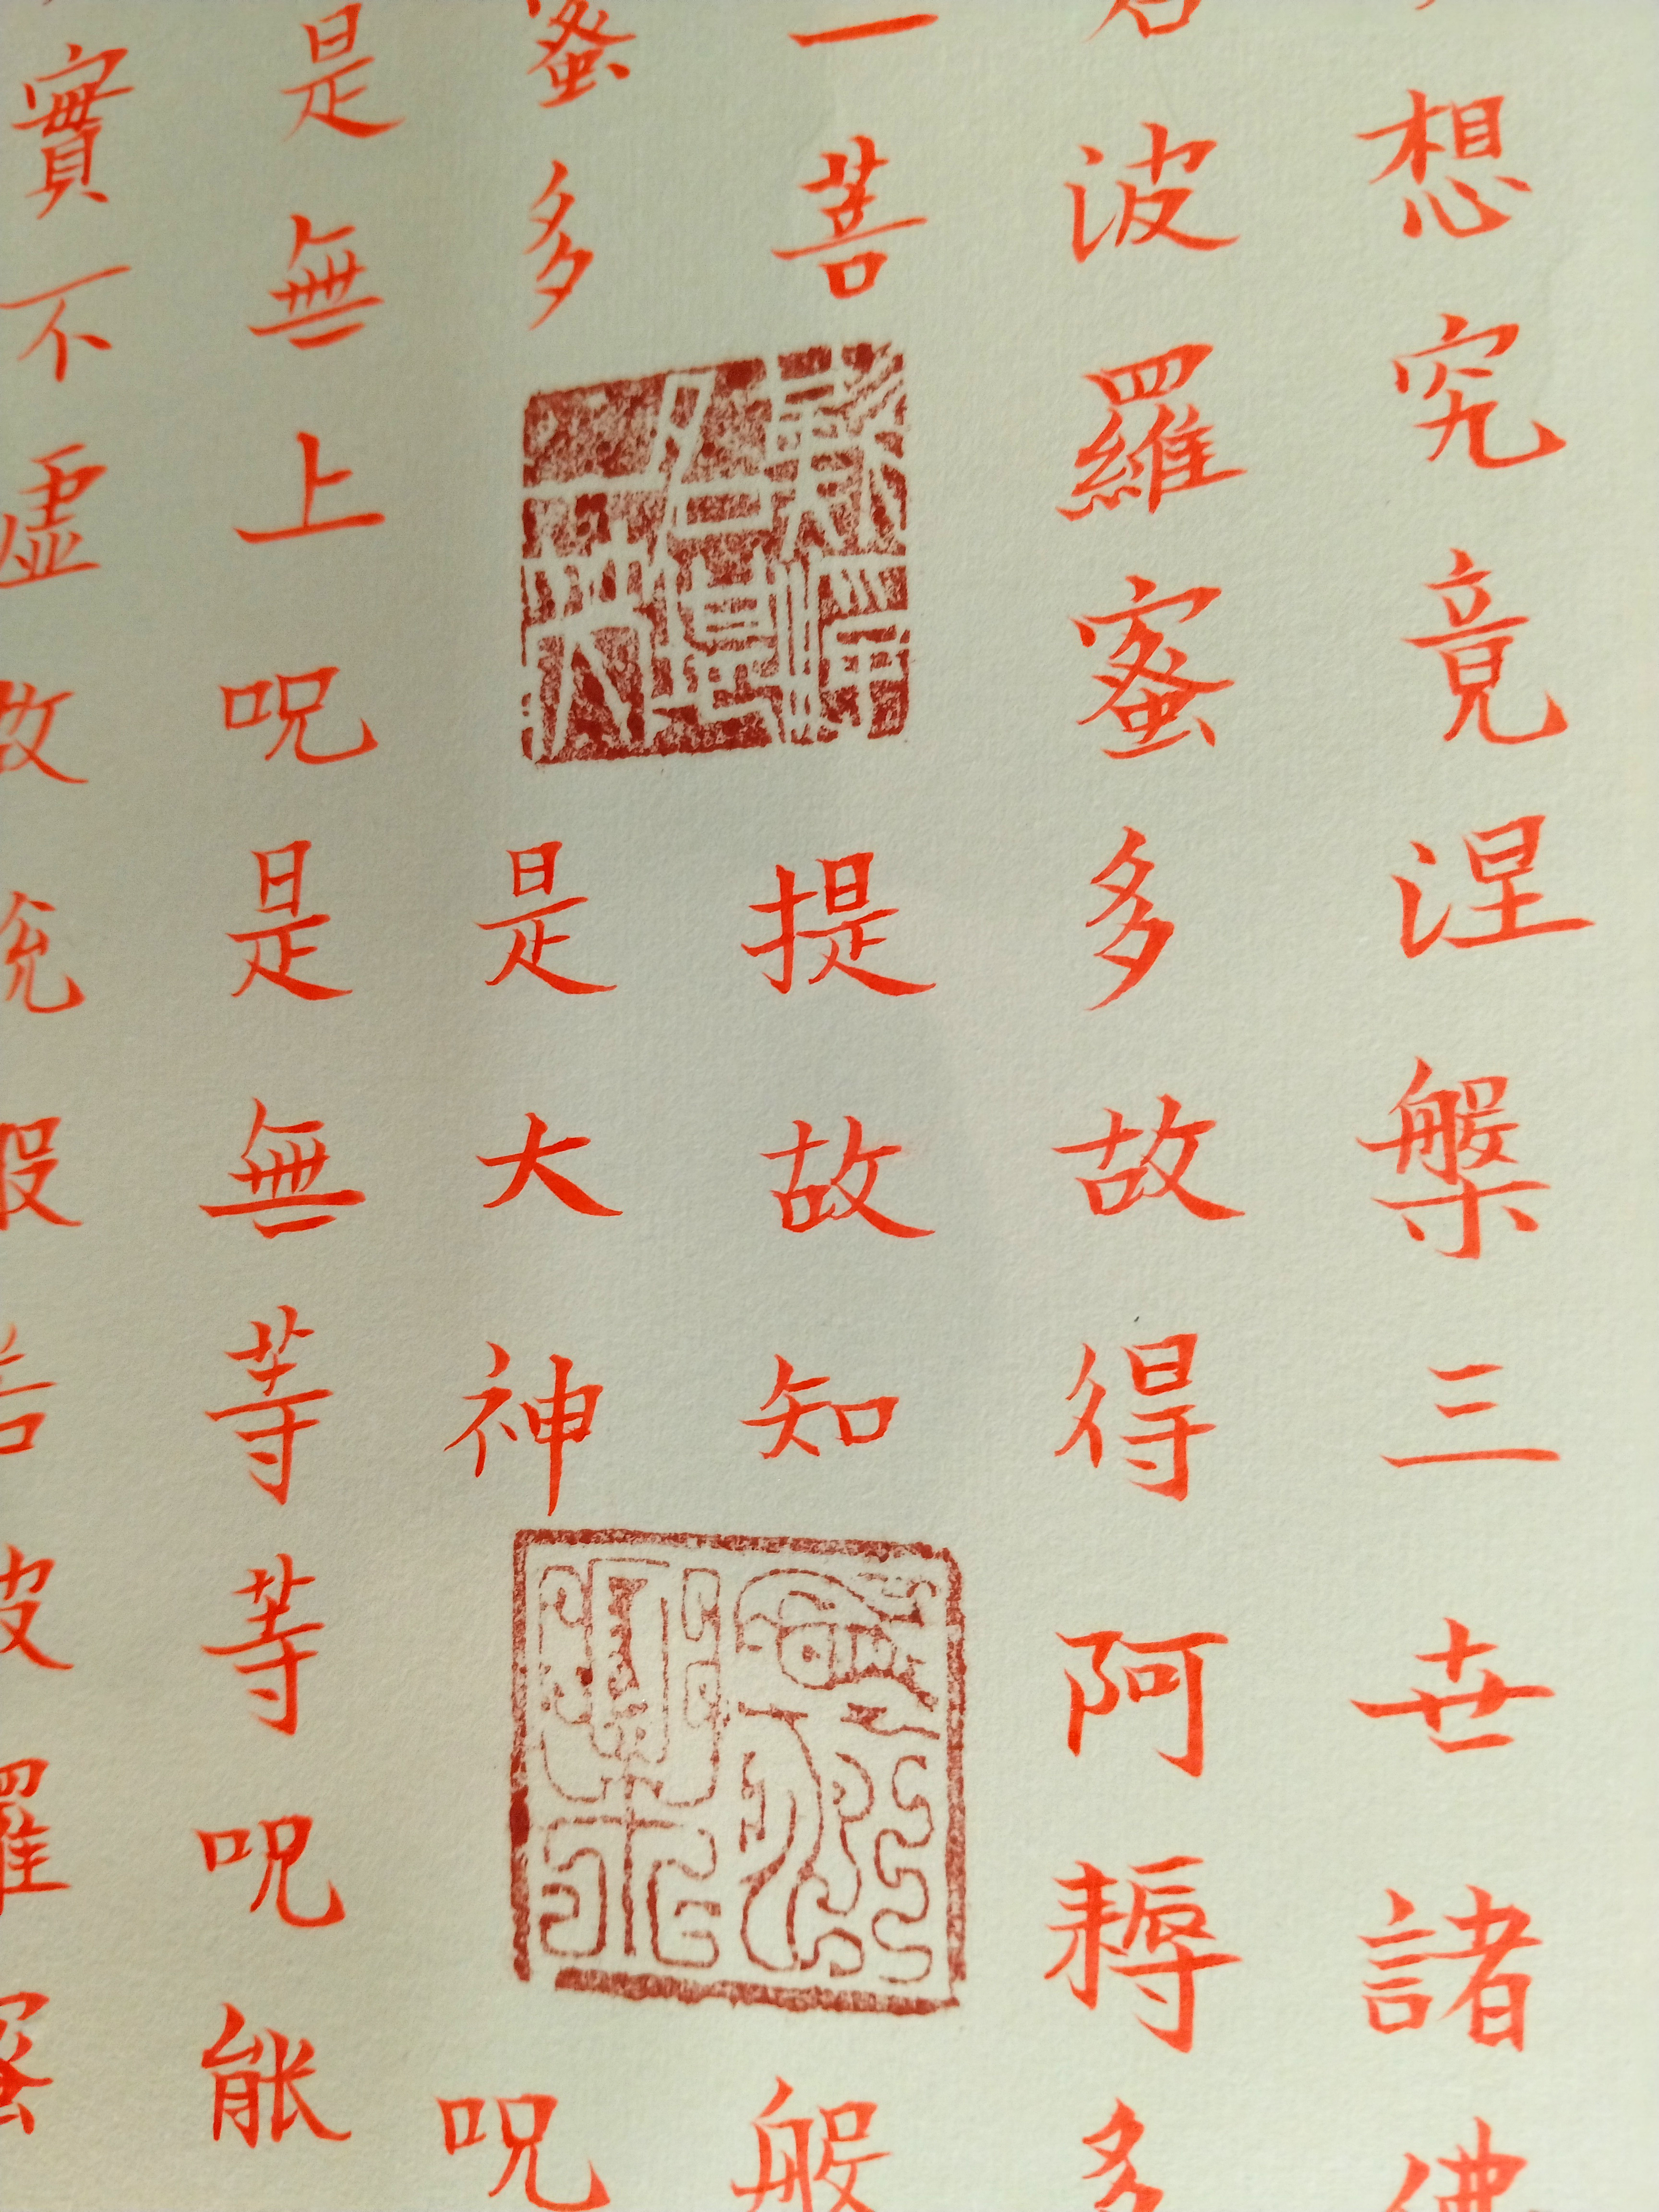 想究竟涅槃三世諸佛
波羅蜜多故得阿耨多
一菩提故知般
蜜多是大神咒
是無上咒是無等等咒能
實不虛故說般若波羅蜜